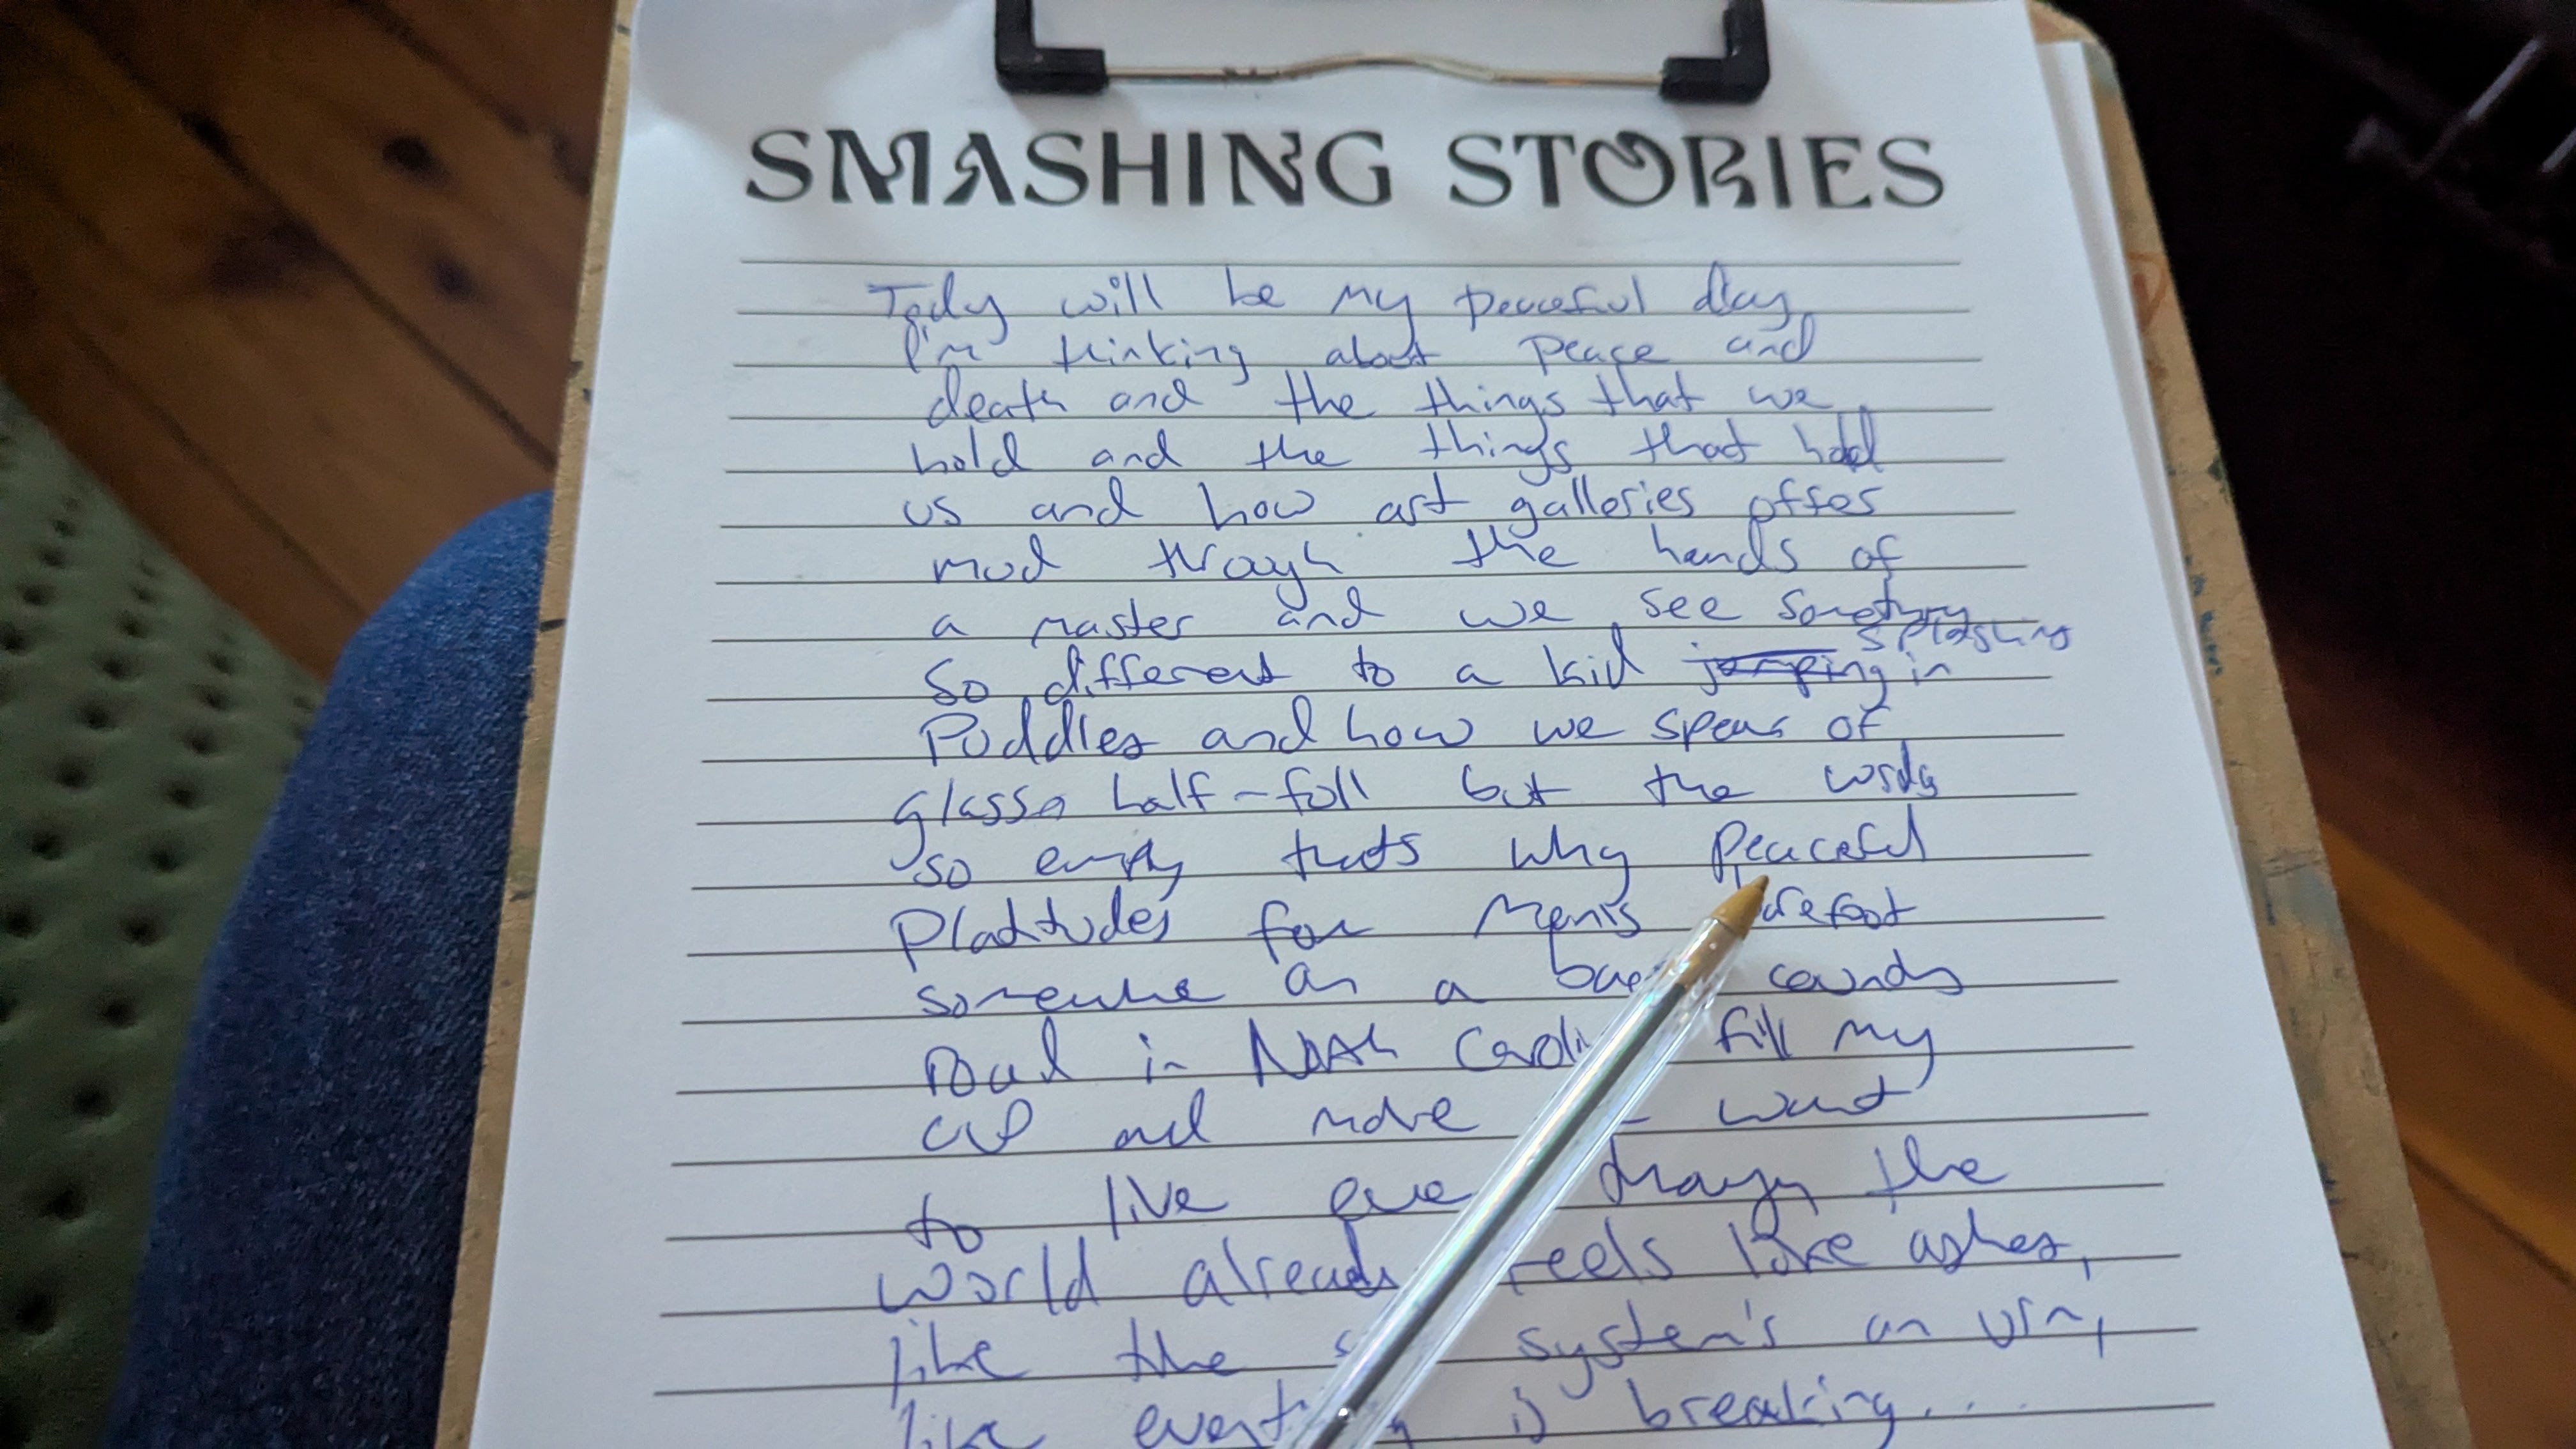 SMASHING STORIES
Today will be my peaceful day,
I'm thinking about peace and
death and the things that we
hold and the things that hold
us and how art galleries offer
mud through the hands of
a master and we see something
splashing
so different to a kid jumping in
puddles and how we speak of
glasses half-full but the words
so empty that's why peaceful
platitudes for barefoot
somewhere on a country
road in North fill my
cup and more want
to live even though the
world already feels like ashes,
like the system's an urn,
like is breaking....